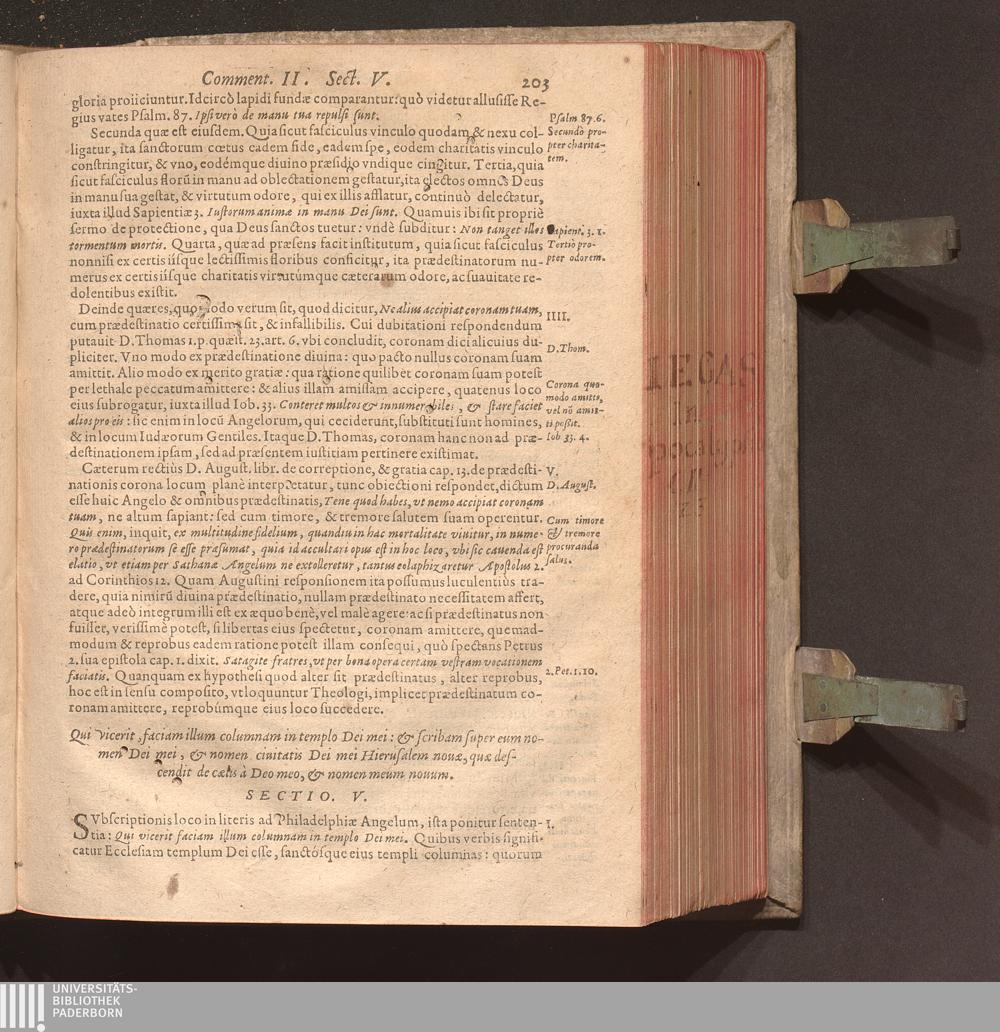 Comment. II. Sect. V. 203
gloria proiiciuntur. Idcircò lapidi fundæ comparantur: quò videtur allusisse Re-
gius vates Psalm. 87. Ipsi verò de manu tua repulsi sunt.
Psalm 87.6.
Secunda quæ est eiusdem. Quia sicut fasciculus vinculo quodam, & nexu col-
Secundò pro-
ligatur, ita sanctorum cœtus eadem fide, eadem spe, eodem charitatis vinculo
pter charita-
constringitur, & vno, eodémque diuino præsidio vndique cingitur. Tertia, quia
tem.
sicut fasciculus florū in manu ad oblectationem gestatur, ita electos omnes Deus
in manu sua gestat, & virtutum odore, qui ex illis afflatur, continuò delectatur,
iuxta illud Sapientiæ 3. Iustorum animæ in manu Dei sunt. Quamuis ibi sit propriè
sermo de protectione, qua Deus sanctos tuetur: vndè subditur: Non tanget illos
Sapient. 3. 1.
tormentum mortis. Quarta, quæ ad præsens facit institutum, quia sicut fasciculus
Tertiò pro-
nonnisi ex certis iísque lectissimis floribus conficitur, ita prædestinatorum nu-
pter odorem.
merus ex certis iísque charitatis virtutúmque cæterarum odore, ac suauitate re-
dolentibus existit.
Deinde quæres, quomodo verum sit, quod dicitur, Ne alius accipiat coronam tuam,
IIII.
cum prædestinatio certissima sit, & infallibilis. Cui dubitationi respondendum
putauit D. Thomas 1. p. quæst. 23. art. 6. vbi concludit, coronam dici alicuius du-
D. Thom.
pliciter. Vno modo ex prædestinatione diuina: quo pacto nullus coronam suam
amittit. Alio modo ex merito gratiæ: qua ratione quilibet coronam suam potest
per lethale peccatum amittere: & alius illam amissam accipere, quatenus loco
Corona quo-
eius subrogatur, iuxta illud Iob. 33. Conteret multos & innumerabiles, & stare faciet
modo amitti,
vel nō amit-
alios pro eis: sic enim in locū Angelorum, qui ceciderunt, substituti sunt homines,
ti possit.
& in locum Iudæorum Gentiles. Itaque D. Thomas, coronam hanc non ad præ-
Iob 33. 4.
destinationem ipsam, sed ad præsentem iustitiam pertinere existimat.
Cæterum rectiùs D. August. libr. de correptione, & gratia cap. 13. de prædesti-
V.
nationis corona locum planè interpretatur, tunc obiectioni respondet, dictum
D. August.
esse huic Angelo & omnibus prædestinatis, Tene quod habes, vt nemo accipiat coronam
tuam, ne altum sapiant: sed cum timore, & tremore salutem suam operentur.
Cum timore
Quis enim, inquit, ex multitudine fidelium, quandiu in hac mortalitate viuitur, in nume-
& tremore
ro prædestinatorum se esse præsumat, quia id occultari opus est in hoc loco, vbi sic cauenda est
procuranda
elatio, vt etiam per Sathanæ Angelum ne extolleretur, tantus colaphizaretur Apostolus 2.
salus.
ad Corinthios 12. Quam Augustini responsionem ita possumus luculentiùs tra-
dere, quia nimirū diuina prædestinatio, nullam prædestinato necessitatem affert,
atque adeò integrum illi est ex æquo benè, vel malè agere ac si prædestinatus non
fuisset, verissimè potest, si libertas eius spectetur, coronam amittere, quemad-
modum & reprobus eadem ratione potest illam consequi, quò spectans Petrus
2. sua epistola cap. 1. dixit. Satagite fratres, vt per bona opera certam vestram vocationem
faciatis. Quanquam ex hypothesi quod alter sit prædestinatus, alter reprobus,
2. Pet. 1. 10.
hoc est in sensu composito, vt loquuntur Theologi, implicet prædestinatum co-
ronam amittere, reprobúmque eius loco succedere.
Qui vicerit, faciam illum columnam in templo Dei mei: & scribam super eum no-
men Dei mei, & nomen ciuitatis Dei mei Hierusalem nouæ, quæ des-
cendit de cælis à Deo meo, & nomen meum nouum.
SECTIO. V.
SVbscriptionis loco in literis ad Philadelphiæ Angelum, ista ponitur senten-
I.
tia: Qui vicerit faciam illum columnam in templo Dei mei. Quibus verbis signifi-
catur Ecclesiam templum Dei esse, sanctósque eius templi columnas: quorum
UNIVERSITÄTS-
BIBLIOTHEK
PADERBORN